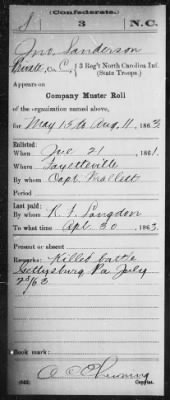 (Confederate.)
S 3 N.C.
Jno. Sanderson
Private, Co. C, 3 Reg't North Carolina Inf.
(State Troops.)
Appears on
Company Muster Roll
of the organization named above,
for May 1st to Aug. 11, 1863.
Enlisted:
When Jue 21, 1861.
Where Fayetteville
By whom Capt. Mallett
Period
Last paid:
By whom R. S. Langdon
To what time Apl. 30, 1863.
Present or absent
Remarks: Killed battle
Gettysburg Pa July
2d/63
Book mark:
(642) Copyist.